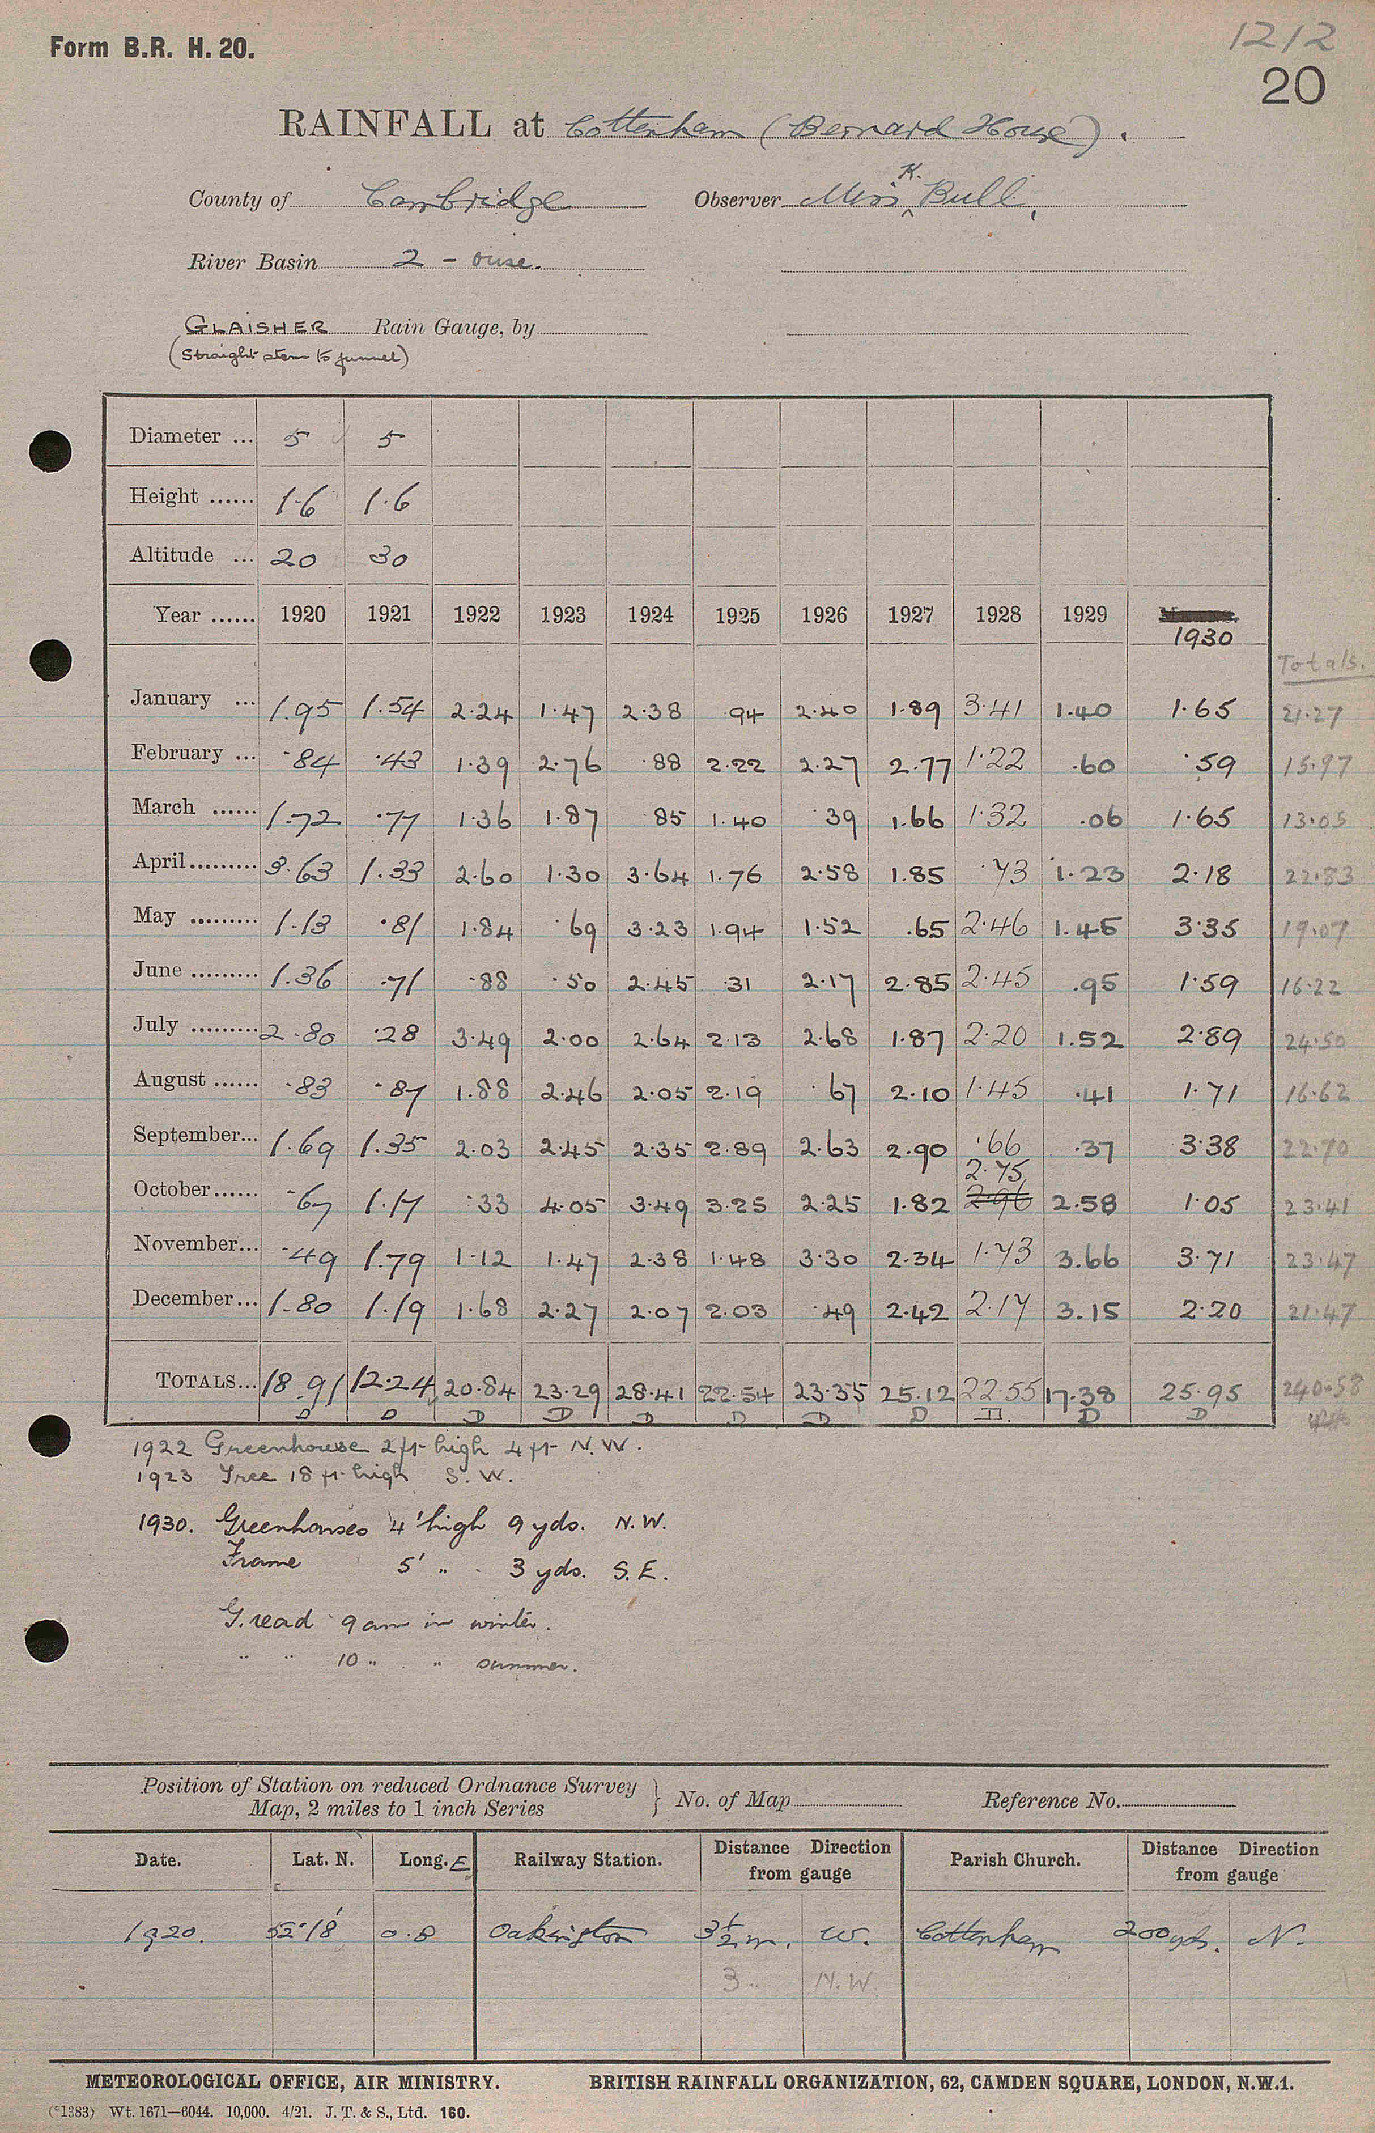 Form B.R. H. 20.
1212
20
RAINFALL at Cottenham (Bernard House).
County of Cambridge Observer Miss K. Bull,
River Basin 2 - ouse.
GLAISHER Rain Gauge, by
(Straight stem to funnel)
Diameter ... 5 5
Height ...... 1.6 1.6
Altitude ... 20 30
Year ...... 1920 1921 1922 1923 1924 1925 1926 1927 1928 1929 1930
Totals.
January ... 1.95 1.54 2.24 1.47 2.38 .94 2.40 1.89 3.41 1.40 1.65 21.27
February ... .84 .43 1.39 2.76 .88 2.22 2.27 2.77 1.22 .60 .59 15.97
March ...... 1.72 .77 1.36 1.87 .85 1.40 .39 1.66 1.32 .06 1.65 13.05
April ......... 3.63 1.33 2.60 1.30 3.64 1.76 2.58 1.85 .73 1.23 2.18 22.83
May ......... 1.13 .81 1.84 .69 3.23 1.94 1.52 .65 2.46 1.45 3.35 19.07
June ......... 1.36 .71 .88 .50 2.45 .31 2.17 2.85 2.45 .95 1.59 16.22
July ......... 2.80 .28 3.49 2.00 2.64 2.13 2.68 1.87 2.20 1.52 2.89 24.50
August ...... .83 .87 1.88 2.46 2.05 2.19 .67 2.10 1.45 .41 1.71 16.62
September... 1.69 1.35 2.03 2.45 2.35 2.89 2.63 2.90 .66 .37 3.38 22.70
October...... .67 1.17 .33 4.05 3.49 3.25 2.25 1.82 2.75 2.96 2.58 1.05 23.41
November... .49 1.79 1.12 1.47 2.38 1.48 3.30 2.34 1.73 3.66 3.71 23.47
December... 1.80 1.19 1.68 2.27 2.07 2.03 .49 2.42 2.17 3.15 2.20 21.47
TOTALS... 18.91 12.24 20.84 23.29 28.41 22.54 23.35 25.12 22.55 17.38 25.95 240.58
D D D D D D D D D D D
1922 Greenhouse 2 ft high 4 ft N.W.
1923 Tree 18 ft high S.W.
1930. Greenhouses 4' high 9 yds. N.W.
Frame 5' " 3 yds. S.E.
G. read 9 am in winter.
" " 10 " " summer.
Position of Station on reduced Ordnance Survey
Map, 2 miles to 1 inch Series } No. of Map Reference No.
Date. Lat. N. Long. E Railway Station. Distance Direction from gauge Parish Church. Distance Direction from gauge
1920. 52°18' 0.8 Oakington 3½ m. W. Cottenham 200 yds. N.
3 " N.W.
METEOROLOGICAL OFFICE, AIR MINISTRY. BRITISH RAINFALL ORGANIZATION, 62, CAMDEN SQUARE, LONDON, N.W.1.
(*1383) Wt. 1671—6044. 10,000. 4/21. J. T. & S., Ltd. 160.